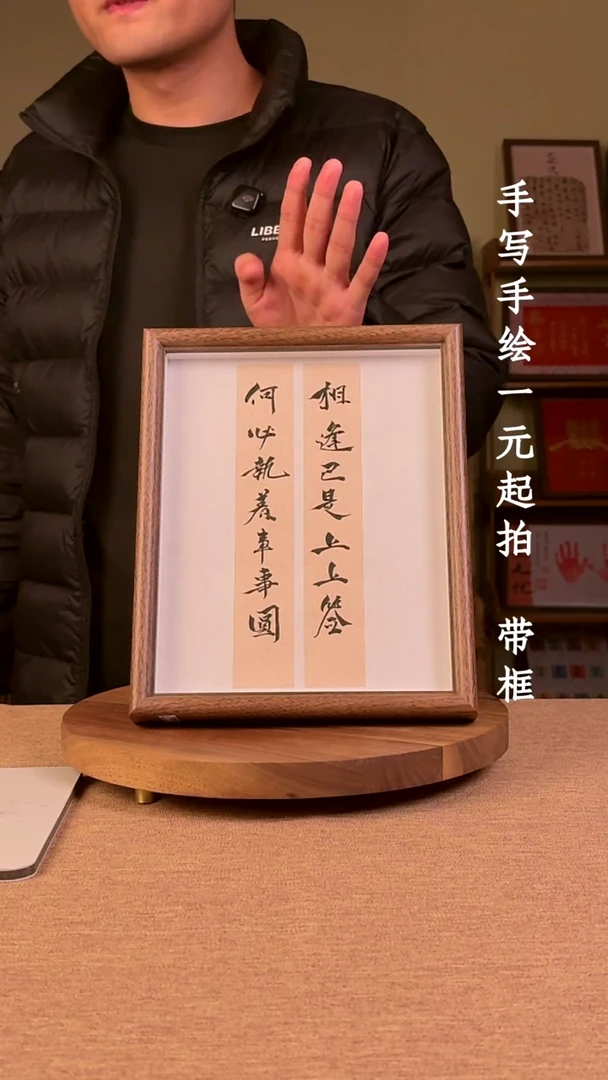 相逢已是上上签
何必執着事事圓
手写手绘一元起拍 带框
LIBE